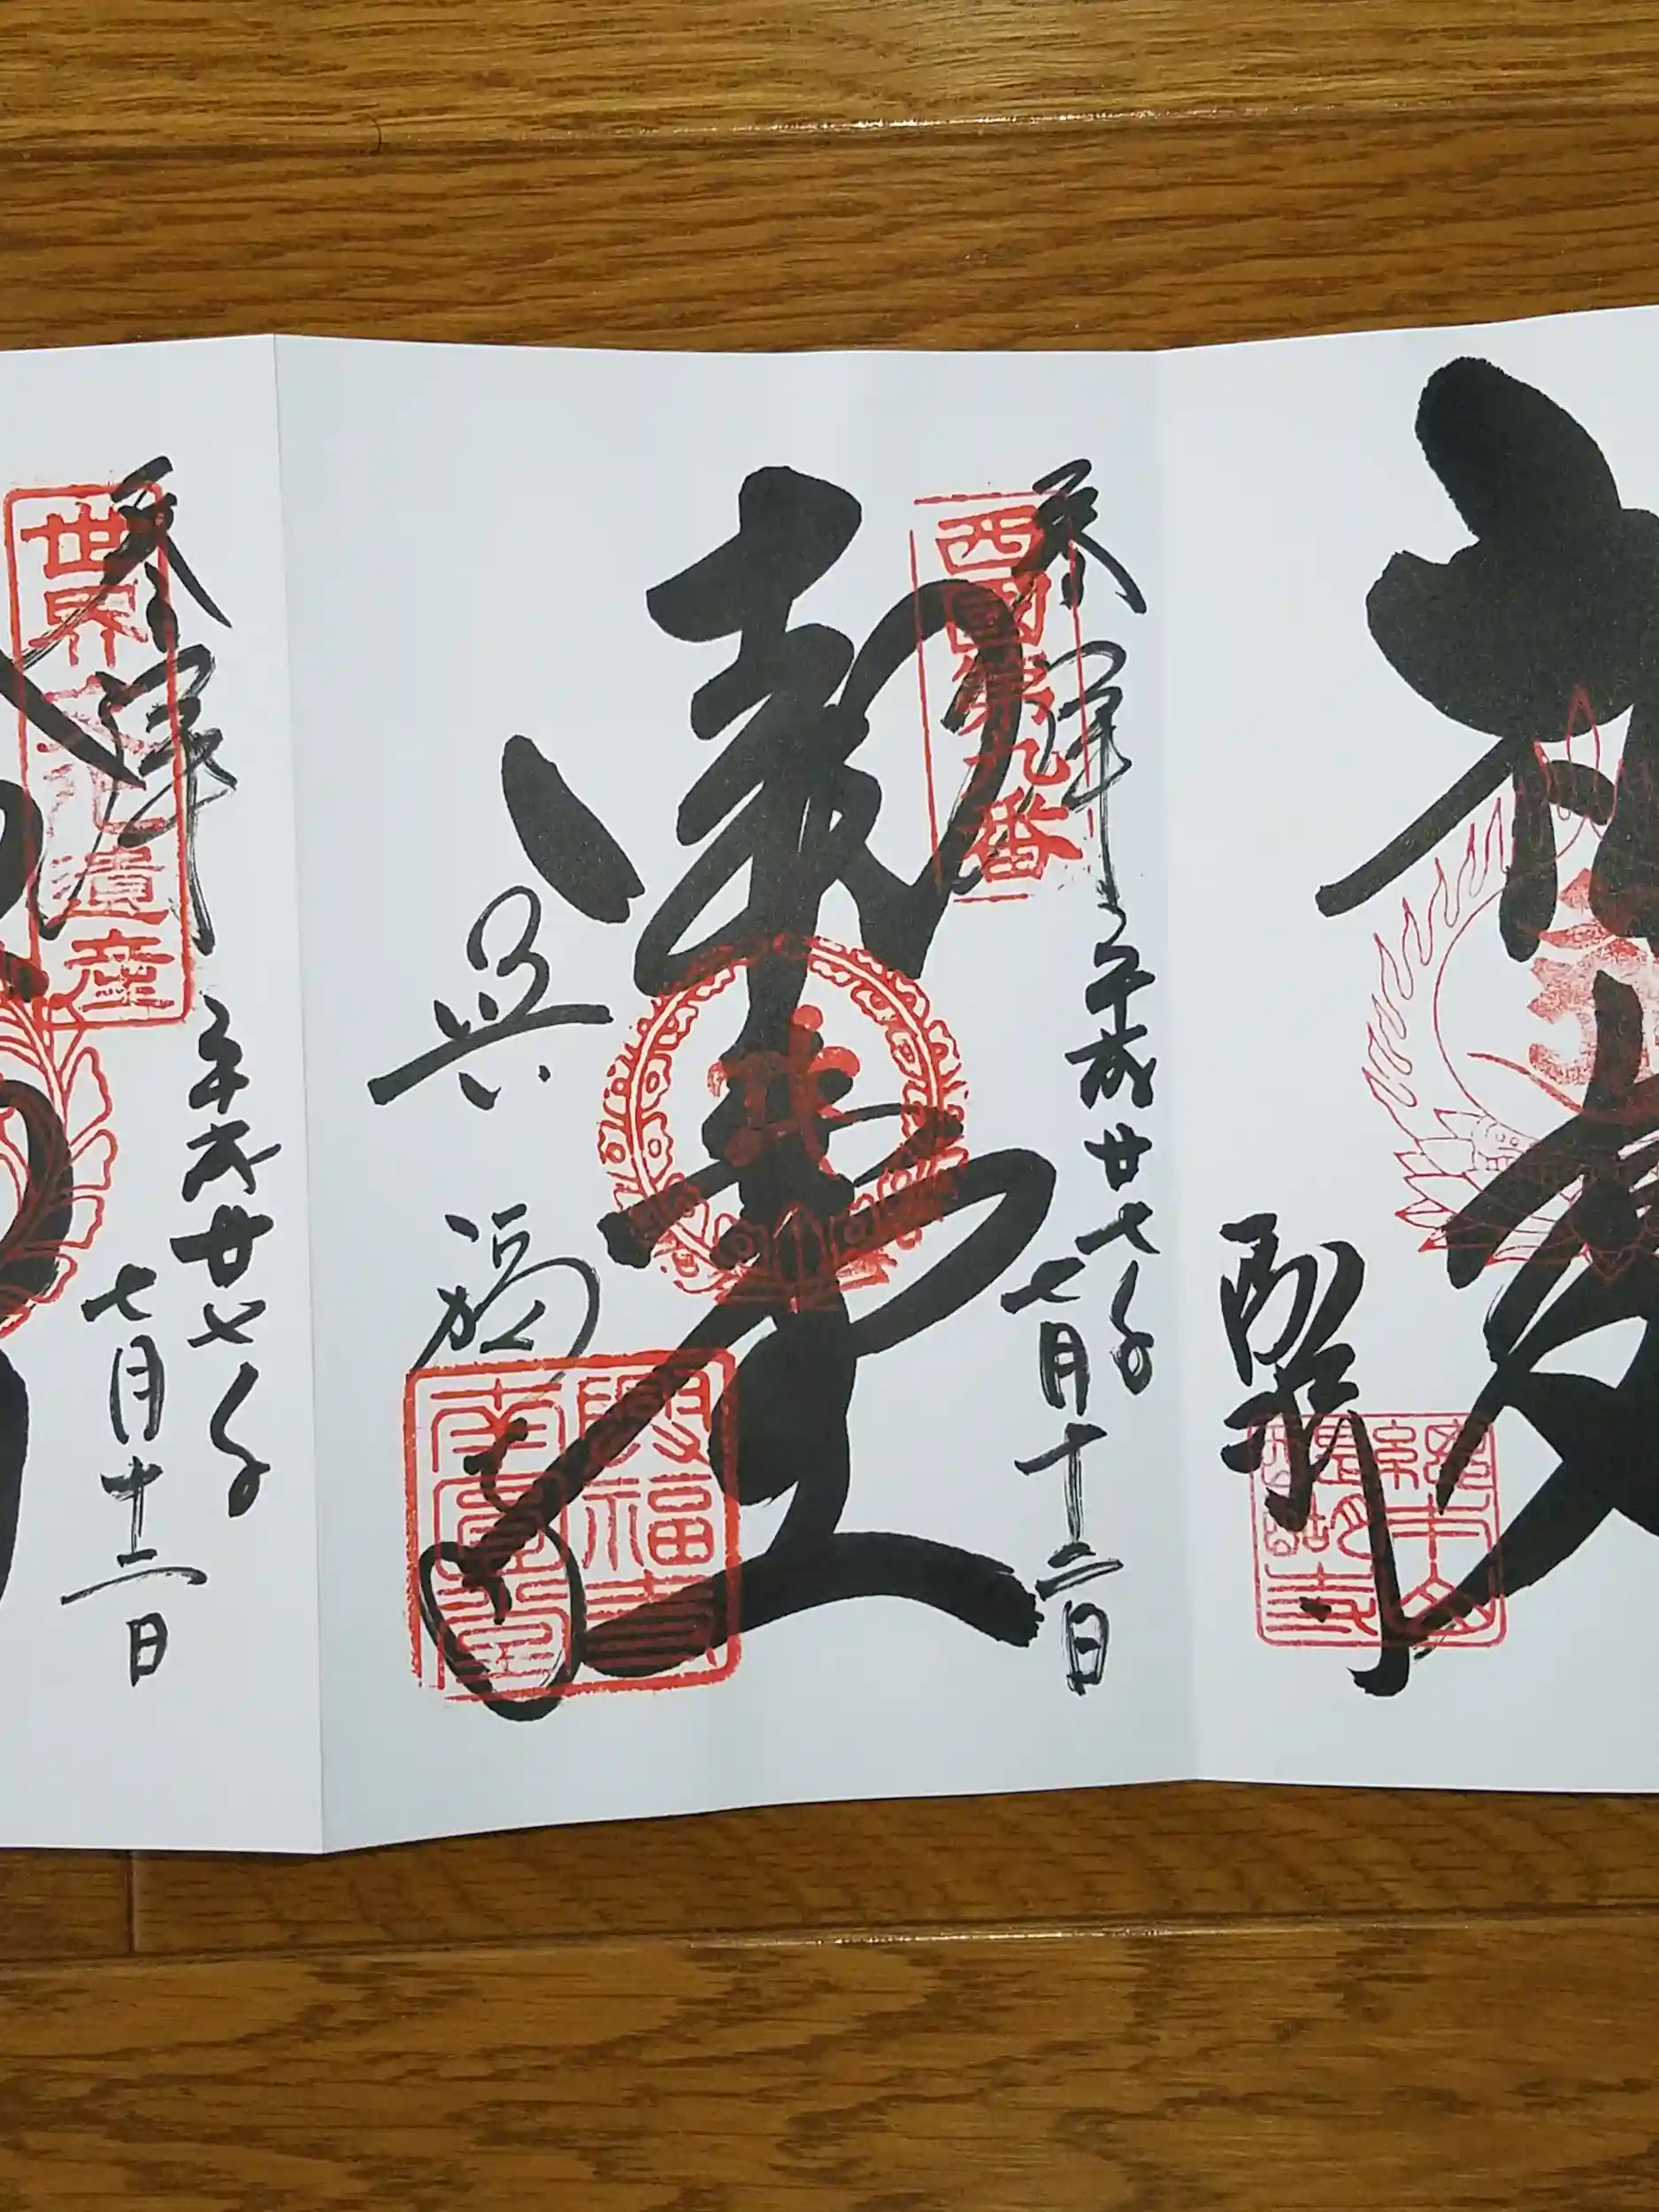 奉拝
平成廿七年
七月十二日
西国第九番
南円堂
興福寺
興福寺
南円堂
奉拝
平成廿七年
七月十二日
世界文化遺産
醍醐寺